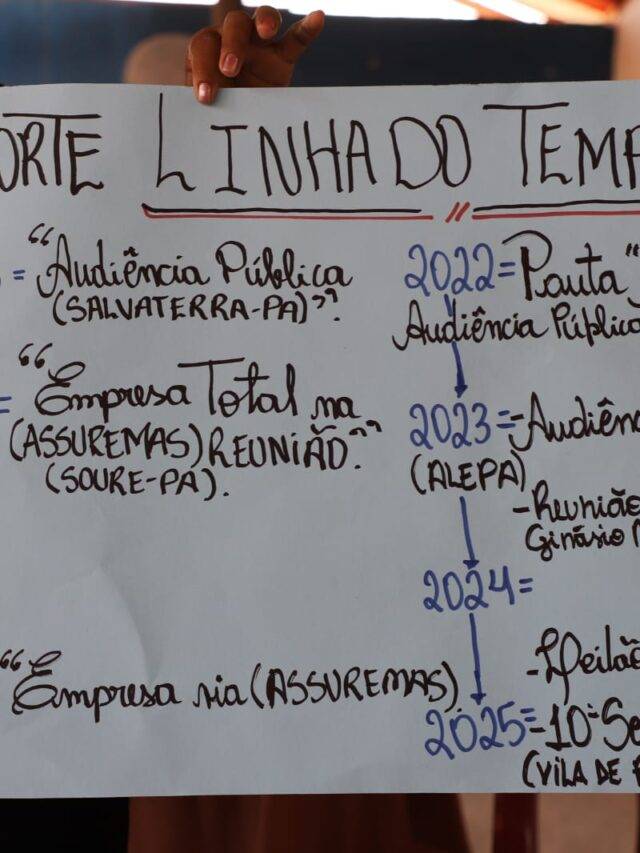 ORTE LINHA DO TEMP
= "Audiência Pública
(SALVATERRA-PA)".
= "Empresa Total na
(ASSUREMAS) REUNIÃO."
(SOURE-PA).
"Empresa via (ASSUREMAS)
2022 = Pauta "
Audiência Pública
2023 = - Audiên
(ALEPA)
- Reunião
Ginásio
2024 =
- Leilão
2025 = - 10ª Se
(VILA DE